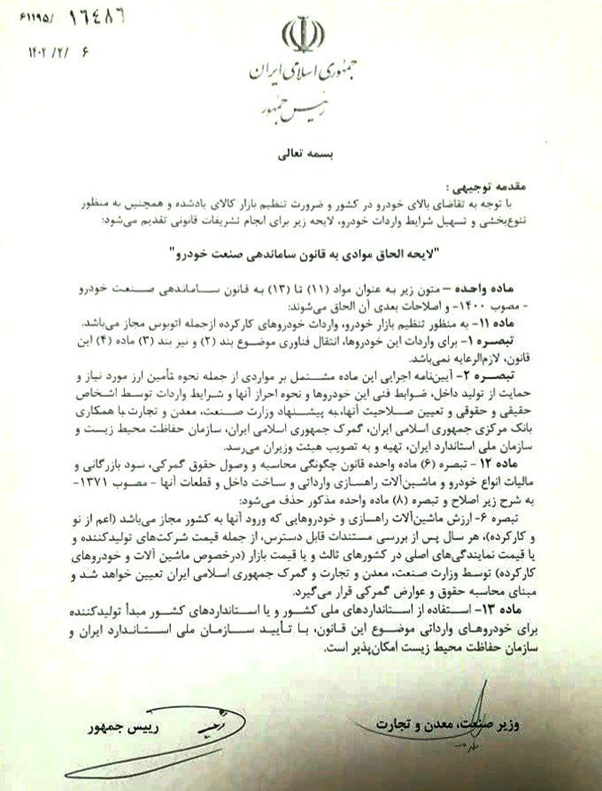 ۶۱۱۹۵/ ۱۶۴۸۶
۱۴۰۲ /۲/ ۶
جمهوری اسلامی ایران
رئیس جمهور
بسمه تعالی
مقدمه توجیهی :
با توجه به تقاضای بالای خودرو در کشور و ضرورت تنظیم بازار کالای یادشده و همچنین به منظور
تنوع‌بخشی و تسهیل شرایط واردات خودرو، لایحه زیر برای انجام تشریفات قانونی تقدیم می‌شود:
"لایحه الحاق موادی به قانون ساماندهی صنعت خودرو"
ماده واحده – متون زیر به عنوان مواد (۱۱) تا (۱۳) به قانون ساماندهی صنعت خودرو
- مصوب ۱۴۰۰- و اصلاحات بعدی آن الحاق می‌شوند:
ماده ۱۱- به منظور تنظیم بازار خودرو، واردات خودروهای کارکرده ازجمله اتوبوس مجاز می‌باشد.
تبصره ۱- برای واردات این خودروها، انتقال فناوری موضوع بند (۲) و نیز بند (۳) ماده (۴) این
قانون، لازم‌الرعایه نمی‌باشد.
تبصره ۲- آیین‌نامه اجرایی این ماده مشتمل بر مواردی از جمله نحوه تأمین ارز مورد نیاز و
حمایت از تولید داخل، ضوابط فنی این خودروها و نحوه احراز آنها و شرایط واردات توسط اشخاص
حقیقی و حقوقی و تعیین صلاحیت آنها، به پیشنهاد وزارت صنعت، معدن و تجارت با همکاری
بانک مرکزی جمهوری اسلامی ایران، گمرک جمهوری اسلامی ایران، سازمان حفاظت محیط زیست و
سازمان ملی استاندارد ایران، تهیه و به تصویب هیئت وزیران می‌رسد.
ماده ۱۲ - تبصره (۶) ماده واحده قانون چگونگی محاسبه و وصول حقوق گمرکی، سود بازرگانی و
مالیات انواع خودرو و ماشین‌آلات راهسازی وارداتی و ساخت داخل و قطعات آنها - مصوب ۱۳۷۱-
به شرح زیر اصلاح و تبصره (۸) ماده واحده مذکور حذف می‌شود:
تبصره ۶- ارزش ماشین‌آلات راهسازی و خودروهایی که ورود آنها به کشور مجاز می‌باشد (اعم از نو
و کارکرده)، هر سال پس از بررسی مستندات قابل دسترس، از جمله قیمت شرکت‌های تولیدکننده و
یا قیمت نمایندگی‌های اصلی در کشورهای ثالث و یا قیمت بازار (درخصوص ماشین آلات و خودروهای
کارکرده) توسط وزارت صنعت، معدن و تجارت و گمرک جمهوری اسلامی ایران تعیین خواهد شد و
مبنای محاسبه حقوق و عوارض گمرکی قرار می‌گیرد.
ماده ۱۳- استفاده از استانداردهای ملی کشور و یا استانداردهای کشور مبدأ تولیدکننده
برای خودروهای وارداتی موضوع این قانون، با تأیید سازمان ملی استاندارد ایران و
سازمان حفاظت محیط زیست امکان‌پذیر است.
وزیر صنعت، معدن و تجارت
رییس جمهور